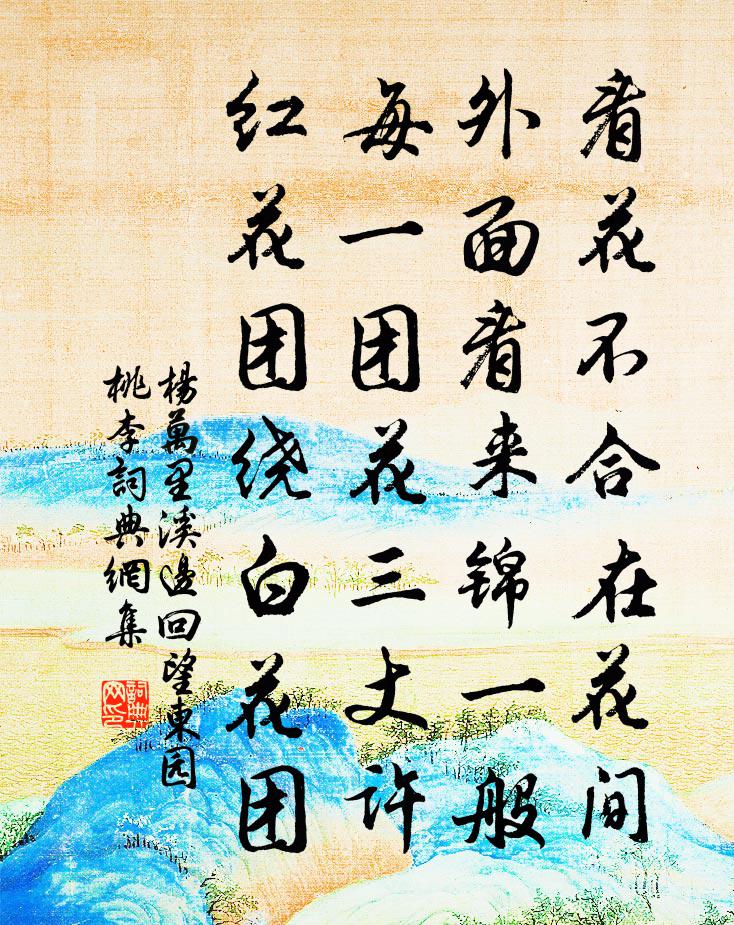 看花不合在花间
外面看来锦一般
每一团花三丈许
红花团绕白花团
楊萬里溪邊回望東园
桃李詞典網集
詞典网印